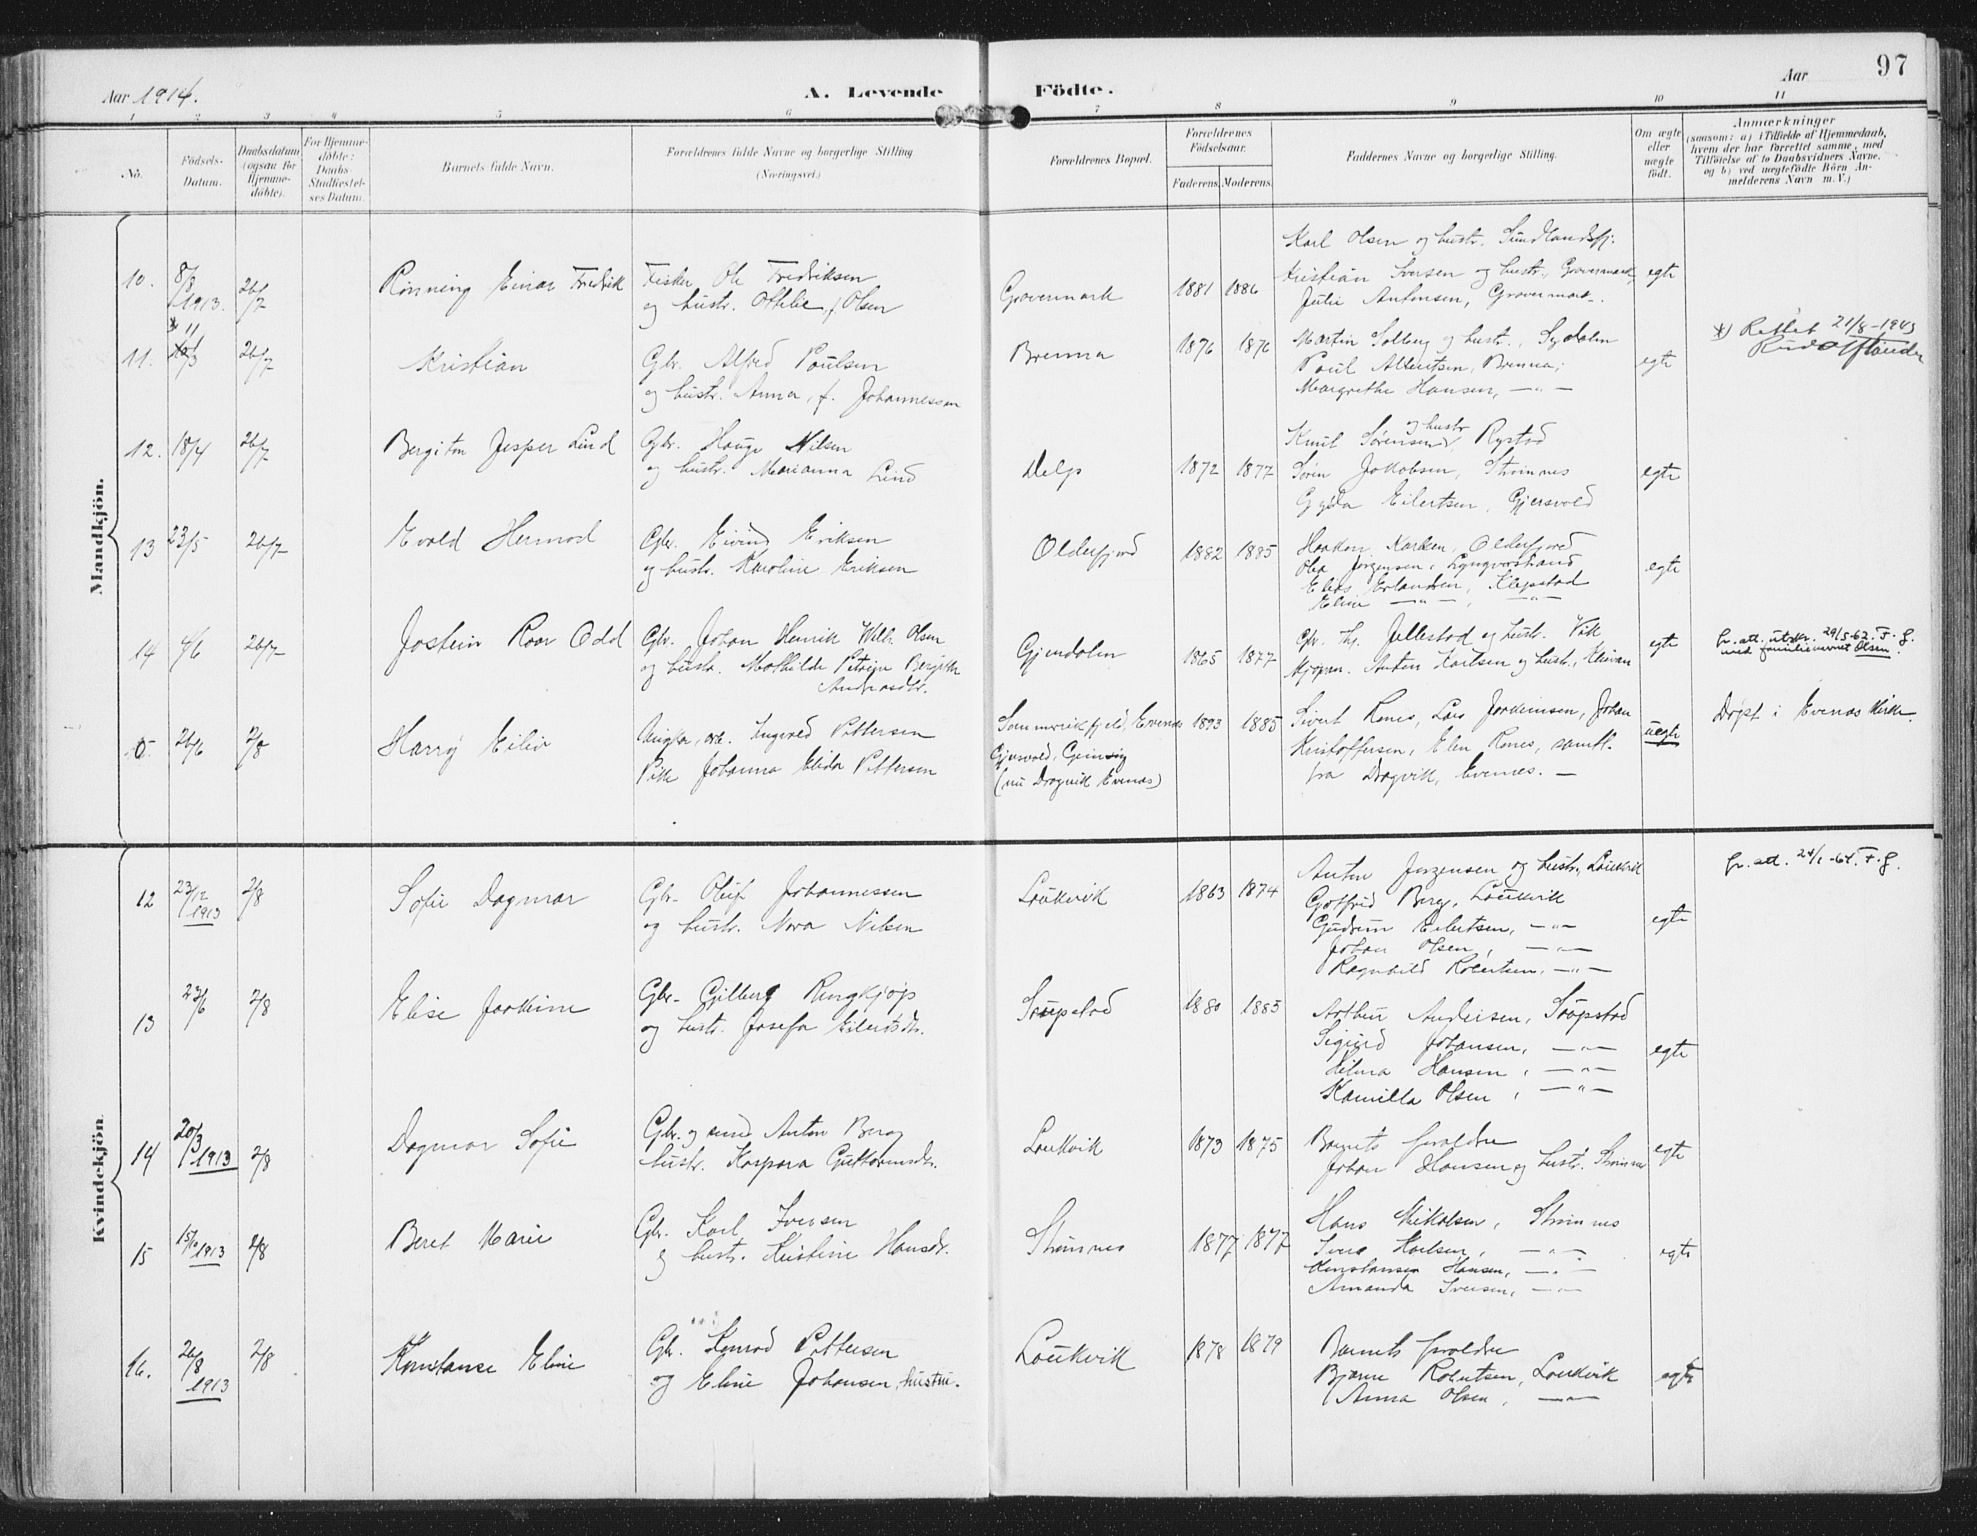 Aar 1914.
A. Levende Födte.
Aar
97
1 2 3 4 5 6 7 8 9 10 11
No.
Födsels-Datum.
Daabsdatum (ogsaa for Hjemme-döbte).
For Hjemme-döbte: Daabs-Stadfæstel-ses Datum.
Barnets fulde Navn.
Forældrenes fulde Navne og borgerlige Stilling (Næringsvei.)
Forældrenes Bopæl.
Forældrenes Födselsaar.
Faderens. Moderens.
Faddernes Navne og borgerlige Stilling.
Om ægte eller uægte födt.
Anmærkninger
(saasom: a) i Tilfælde af Hjemmedaab, hvem der har forrettet samme, med Tilföielse af to Daabsvidners Navne, og b) ved uægtefödte Börn An-melderens Navn m. V.)
Mandkjön.
Karl Olsen og hustr.
10. 8/8 1913. 26/7 Rønning Einar Fredrik Fisker Ole Fredriksen Grovermark 1881 1886 Kristian Iversen og hustr., Grovermark, egte
og hustr. Othelie, f. Olsen Julie Antonsen, Grovermark.
11. 26/7 Kristian Gbr. Alfred Poulsen Brenna 1876 1876 Martin Solberg og hustr., egte *) Rettet 21/8-1943
og hustr. Anna, f. Johannessen Poul Albertsen, Brenna,
Margrethe Hansen, —"—
12. 18/4 26/7 Bergiton Jesper Lind Gbr. Hauge Nilsen Delp 1872 1877 Knut Sørensen og hustr. Rystad egte
og hustr. Marianna Lind Sørin Jakobsen, Strømnes
Gyda Eilertsen, Gjersvold
13 23/5 26/7 Evald Hermod Gbr. Eivind Eriksen Olderfjord 1882 1885 Haakon Karlsen, Olderfjord egte
og hustr. Karoline Eriksen Ole Jørgensen, Lyngværstrand
Elias Erlandsen, Klepstad
Eline —"—, —"—
14 4/6 26/7 Jostein Roar Odd Gbr. Johan Henrik Wilh. Olsen Gjerdalen 1865 1877 Gbr. Th. Jellestad og hustr. Vik egte fr. att. utskr. 29/5-62. F. f.
og hustr. Mathilde Petrine Bergitte Andreasdtr. Kjøpm. Anton Karlsen og hustr., Kleivan med familienavnet Olsen.
26/6 2/8 Harry Eiliv Ungkar, arb. Ingvald Pettersen Evenes 1893 1885 Sivert Rones, Lars Joakimsen, Johan uegte Døpt i Evenes kirke.
Pike Johanna Elida Pettersen Gjersvold, Gimsøy Kristoffersen, Elen Rones, samtl.
(nu Dragvik Evenes) fra Dragvik, Evenes. —
Kvindekjön
12 23/12 1913 2/8 Sofie Dagmar Gbr. Oluf Johannessen Loukvik 1863 1874 Anton Jørgensen og hustr., Loukvik egte fr. att. 24/1-64. F. f.
og hustr. Nora Nilsen Gotfrid Berg, Loukvik
Gudrun Eilertsen, —"—
Johan Olsen, —"—
Ragnhild Robertsen, —"—
13 23/6 2/8 Elise Joakime Gbr. Gilbert Ringkjøp Soupstad 1880 1885 Arthur Andersen, Soupstad egte
og hustr. Josefa Eilertsdtr. Sigurd Johansen, —"—
Hilma Hansen, —"—
Kamilla Olsen, —"—
14 20/3 1913 2/8 Dagmar Sofie Gbr. og smed Anton Berg Loukvik 1873 1875 Barnets forældre egte
hustr. Kaspara Guttormsdtr. Johan Hansen og hustr. Strømnes
15 1913 2/8 Beret Marie Gbr. Karl Iversen Strømnes 1877 1877 Hans Mikalsen, Strømnes egte
og hustr. Kristine Hansdtr. Iver Karlsen, —"—
Konstanse Hansen, —"—
Amanda Iversen, —"—
16. 26/8 1913 2/8 Konstanse Eline Gbr. Konrad Pettersen Loukvik 1878 1879 Barnets forældre egte
og Eline Johansen, hustru. Bjarne Robertsen, Loukvik
Anna Olsen, —"—